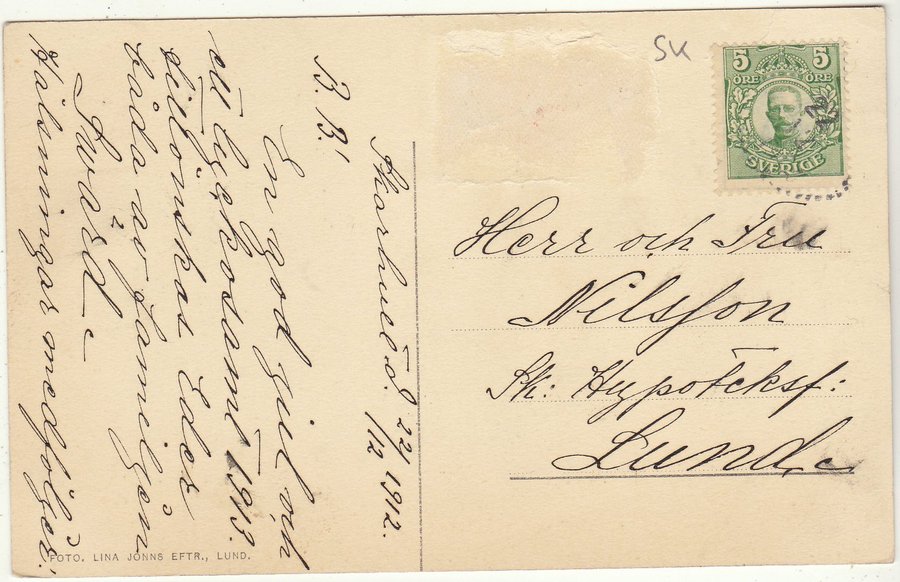 SK
5 5
ÖRE ÖRE
SVERIGE
Skarhult d. 22/12 1912.
B. B!
En god jul och
ett lyckosamt 1913.
tillönskas Eder
båda av familjen
Swärd.
Hälsningar medföljer.
Herr och Fru
Nilsson
Sk: Hypoteksf:
Lund.
FOTO. LINA JONNS EFTR., LUND.